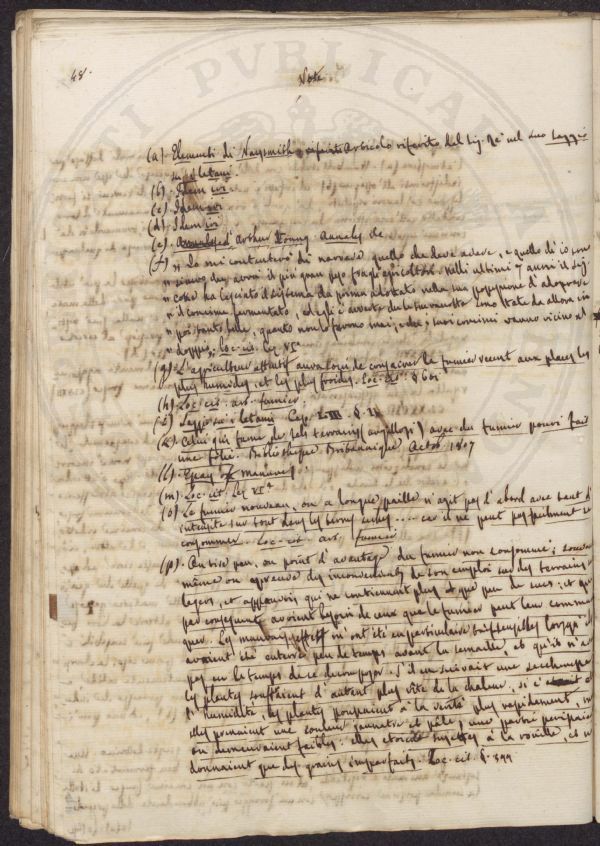 48.
Note
(a) Elementi di Naysmith articolo riferito dal Sig. Re nel suo Saggio
su i letami.
(b) Idem ivi
(c) Idem ivi
(d) Idem ivi
(e) d'Arthur Young Annales de
(f) " Io mi contenterò di narrare quello che deve avere, e quello di
" degli ultimi 7 anni il Sig.
" Coke ha lasciato il sistema da prima adottato nella sua porzione d'adoprare
" il concime fermentato, ed egli è sono state da allora in
" poi tanto belle, quanto non lo furono mai, e che i suoi concimi vanno vicino al
" doppio. loc. cit. Lez. VIª
(g) L'agriculteur attentif aura soin de consacrer le fumier récent aux places les
plus humides, et les plus froides. loc. cit. § 601
(h) Loc. cit. art. fumier.
(i) Saggio su i letami Cap. § II
(k) Celui qui fume de tels terrains (argilleux) avec du fumier pourri fait
une folie. Bibliotheque Britannique 1807
(l) Essay of manures
(m) Loc. cit. Lez. VIª
(o) Le fumier nouveau, ou a longue paille n'agit pas d'abord avec tant d'
intensité sur tout dans les terres seches .... car il ne peut pas facilement se
consommer. Loc. cit. art. fumier
(p) On tire peu, ou point d'avantage du fumier non consommé; souvent
même on eprouve des inconvenients de son emploi sur des terrains
legers, et appauvris qui ne contiennent plus que peu de sucs, et qui
par consequent avoient besoin de ceux que le fumier peut leur communi
quer. Les mauvais effets m'ont été en particulier lorsqu'il
avaient été enterrés peu de temps avant la semaille, et qu'ils n'a
pas eu le temps de se decomposer. S'il en suivait une secheresse
les plantes souffraient d'autant plus vite de la chaleur, si c'etait
l'humidité, les plantes poussaient à la verité plus rapidement, m
elles prenaient une couleur jaunatre et pâle, une partie perissai
ou demeuraient faibles: elles etoient sujettes à la rouille, et n
donnaient que des grains imparfaits. Loc. cit. § 399